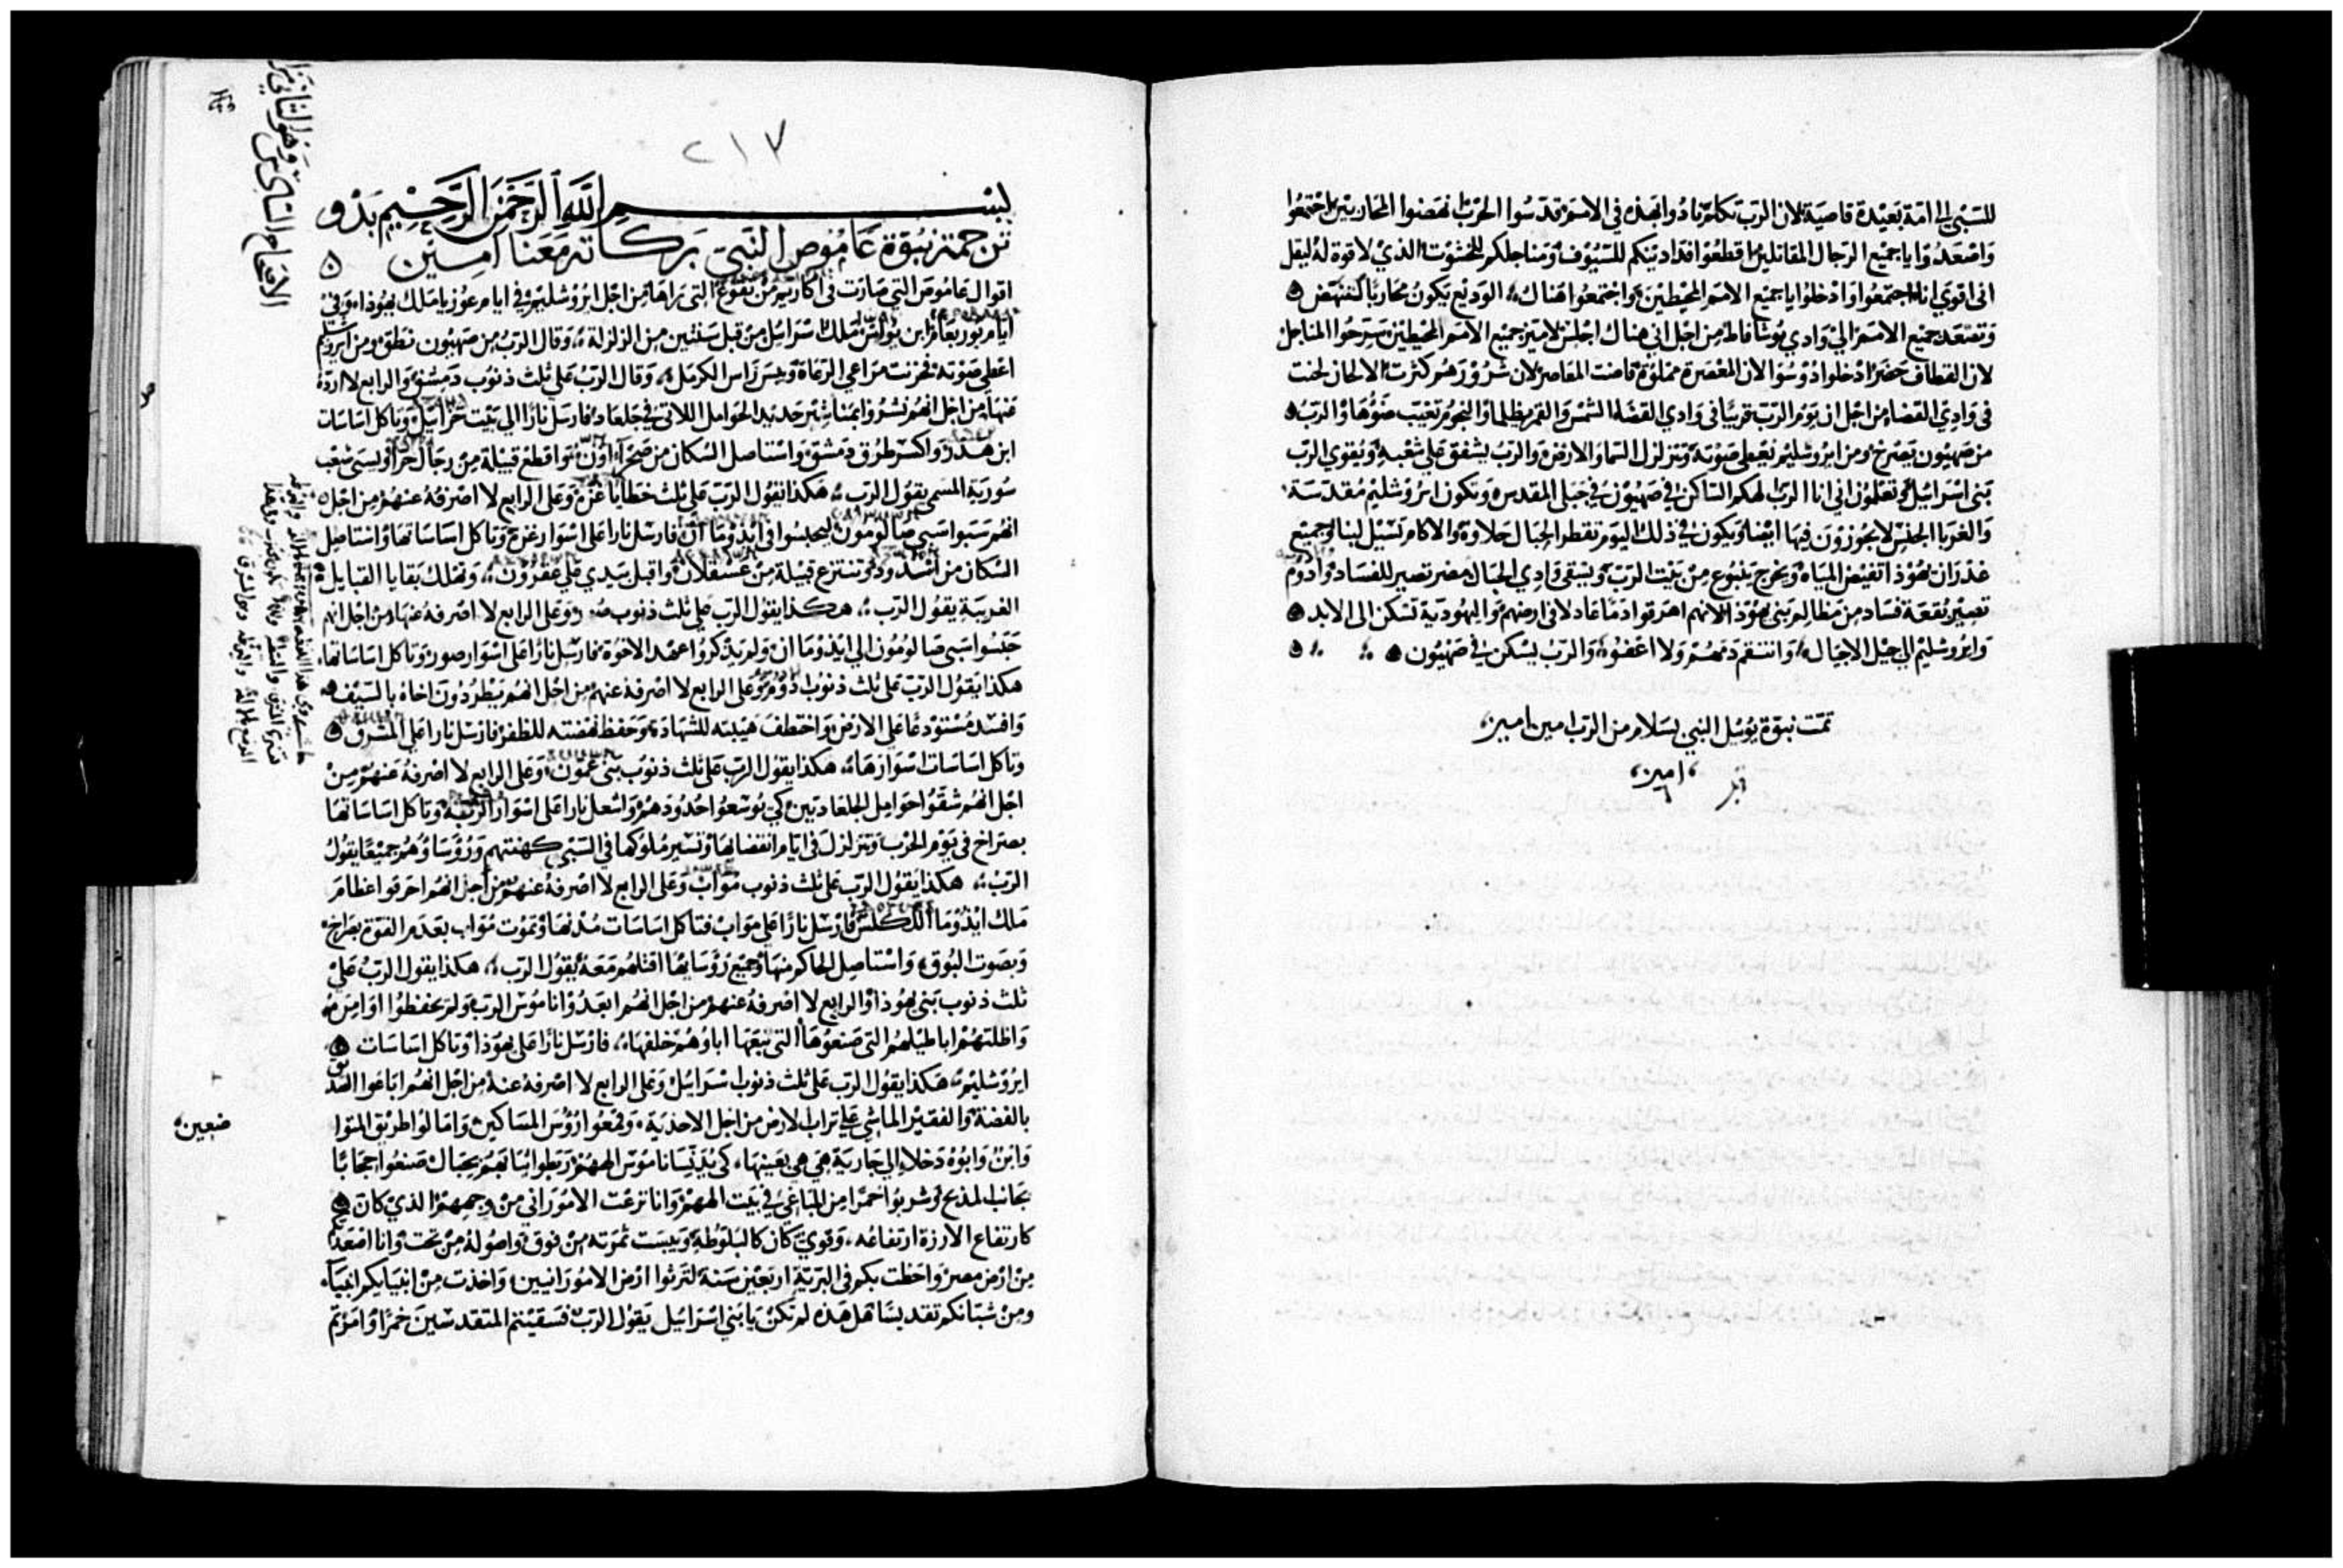 للسبي الى امة بعيدة قاصية لان الرب تكلم نادوا بهذه في الامم قدسوا الحرب انهضوا المحاربين اجتمعوا
واصعدوا يا جميع الرجال المقاتلين اقطعوا فدادينكم للسيوف ومناجلكم للخشوت الذي لا قوة له ليقل
اني اقوي انا اجتمعوا وادخلوا يا جميع الامم المحيطين واجتمعوا هناك الوديع يكون محاربا كنهض
وتصعد جميع الامم الي وادي يوشافاط من اجل اني هناك اجلس لاميز جميع الامم المحيطين سرحوا المناجل
لان القطاف حضر ادخلوا دوسوا لان المعصرة مملوة فاضت المعاصر لان شرورهم كثرت الالحان لحنت
في وادي القضاء من اجل ان يوم الرب قريبا في وادي القضاء الشمس والقمر يظلما والنجوم تغيب ضوها والرب
من صهيون يصرخ ومن ايروشليم يعطي صوته وتتزلزل السما والارض والرب يشفق علي شعبه ويقوي الرب
بني اسراييل وتعلمون اني انا الرب الهكم الساكن في صهيون في جبلي المقدس وتكون ايروشليم مقدسة
والغربا الجنس لا يجوزون فيها ايضا ويكون في ذلك اليوم تقطر الجبال حلاوة والاكام تسيل لبنا وجميع
غدران يهوذا تفيض المياه ويخرج ينبوع من بيت الرب ويسقي وادي الجبال مصر تصير للفساد وادوم
تصير بقعة فساد من مظالم بني يهوذا لانهم اهرقوا دما عادلا في ارضهم واليهودية تسكن الى الابد
وايروشليم الي جيل الاجيال وانتقم دمهم ولا اعفوا والرب يسكن في صهيون
تمت نبوة يوئيل النبي بسلام من الرب امين امين
امين
٢١٧
بسم الله الرحمن الرحيم بدو
ترجمة نبوة عاموص النبي بركاته معنا امين
اقوال عاموص التي صارت في اكاريم من تقوع التي راها من اجل ايروشليم في ايام عوزيا ملك يهوذا وفي
ايام يوربعام ابن يواس ملك اسراييل من قبل سنتين من الزلزلة وقال الرب من صهيون نطق ومن ايروشليم
اعطي صوته فحزنت مراعي الرعاة ويبس راس الكرمل وقال الرب علي ثلث ذنوب دمشق والرابع لا ارده
عنها من اجل انهم نشروا بمناشير حديد الحوامل اللاتي في جلعاد فارسل نارا الي بيت حزاييل وتاكل اساسات
ابن هدد واكسر طرق دمشق واستاصل السكان من صحرآ اون واقطع قبيلة من رجال حران ويسبى شعب
سورية المسمى يقول الرب هكذا يقول الرب علي ثلث خطايا غزة وعلى الرابع لا اصرفه عنهم من اجل
انهم سبوا سبي صالومون ليحبسوا في ايدوما ان فارسل نارا على اسوار غزة وتاكل اساساتها واستاصل
السكان من اشدود وتنتزع قبيلة من عسقلان واقبل بيدي علي عقرون وتهلك بقايا القبايل
الغريبة يقول الرب هكذا يقول الرب علي ثلث ذنوب صور وعلى الرابع لا اصرفه عنها من اجل انهم
حبسوا سبي صالومون الي ايدوما ان ولم يذكروا عهد الاخوة فارسل نارا على اسوار صور وتاكل اساساتها
هكذا يقول الرب على ثلث ذنوب ادوم وعلى الرابع لا اصرفه عنهم من اجل انهم يطردون اخاه بالسيف
وافسد مستودعا على الارض واختطف هيبته للشهادة وحفظ نهضته للظفر فارسل نارا علي المشرق
وتاكل اساسات اسوارها هكذا يقول الرب على ثلث ذنوب بني عمون وعلى الرابع لا اصرفه عنهم من
اجل انهم شقوا حوامل الجلعاديين كي يوسعوا حدودهم واشعل نارا على اسوار الربة وتاكل اساساتها
بصراخ في يوم الحرب وتتزلزل في ايام انقضائها وتسير ملوكها في السبي كهنتهم ورؤساؤهم جميعا يقول
الرب هكذا يقول الرب على ثلث ذنوب مواب وعلى الرابع لا اصرفه عنهم من اجل انهم احرقوا عظام
ملك ايدوما الكلس فارسل نارا على مواب فتاكل اساسات مدنها وتموت مواب بعدم القوة بصراخ
وبصوت البوق واستاصل الحاكم منها وجميع رؤسايها اقتلهم معه يقول الرب هكذا يقول الرب علي
ثلث ذنوب بني يهوذا والرابع لا اصرفه عنهم من اجل انهم ابعدوا ناموس الرب ولم يحفظوا اوامره
واظلتهم اباطيلهم التي صنعوها التي تبعها اباؤهم خلفها فارسل نارا على يهوذا وتاكل اساسات
ايروشليم هكذا يقول الرب على ثلث ذنوب اسراييل وعلى الرابع لا اصرفه عنه من اجل انهم اباعوا الصديق
بالفضة والفقير الماشي علي تراب الارض من اجل الاحذية وقمعوا رؤس المساكين وامالوا طريق المتواضعين
وابن وابوه دخلا الي جارية هي هي بعينها كي يدنسا ناموس الههم وربطوا ثيابهم بحبال صنعوا حجابا
بجانب المذبح وشربوا خمرا من المباغي في بيت الههم وانا نزعت الاموراني من وجههم الذي كان
كارتفاع الارزة ارتفاعه وقوي كان كالبلوطة ويبست ثمرته من فوق واصوله من تحت وانا اصعدتكم
من ارض مصر واحطت بكم في البرية اربعين سنة لترثوا ارض الامورانيين واخذت من انبيايكم انبيآ
ومن شبانكم تقديسا هل هذه لم تكن يا بني اسراييل يقول الرب فسقيتم المتقدسين خمرا وامرتم